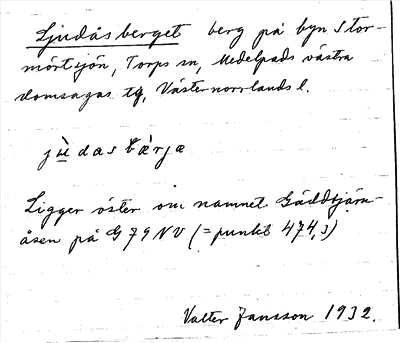 Ljudåsberget berg på byn Stor-
mörtsjön, Torps sn, Medelpads västra
domsagas tg, Västernorrlands l.
jùdasbærjæ
Ligger öster om namnet Gäddtjärn-
åsen på G 79 NV (= punkt 474,3)
Valter Jansson 1932.